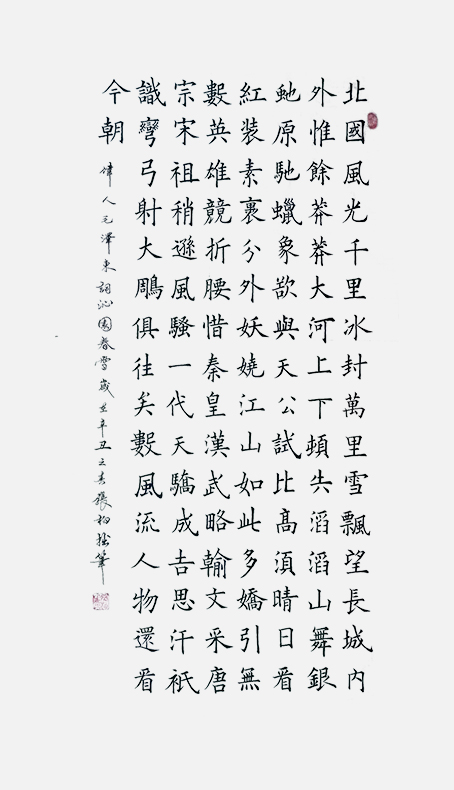 北國風光千里冰封萬里雪飄望長城內
外惟餘莽莽大河上下頓失滔滔山舞銀
虵原馳蠟象欲與天公試比高須晴日看
紅裝素裹分外妖嬈江山如此多嬌引無
數英雄競折腰惜秦皇漢武略輸文采唐
宗宋祖稍遜風騷一代天驕成吉思汗衹
識彎弓射大鵰俱往矣數風流人物還看
今朝
偉人毛澤東詞沁園春雪歲辛丑之春張柏筆